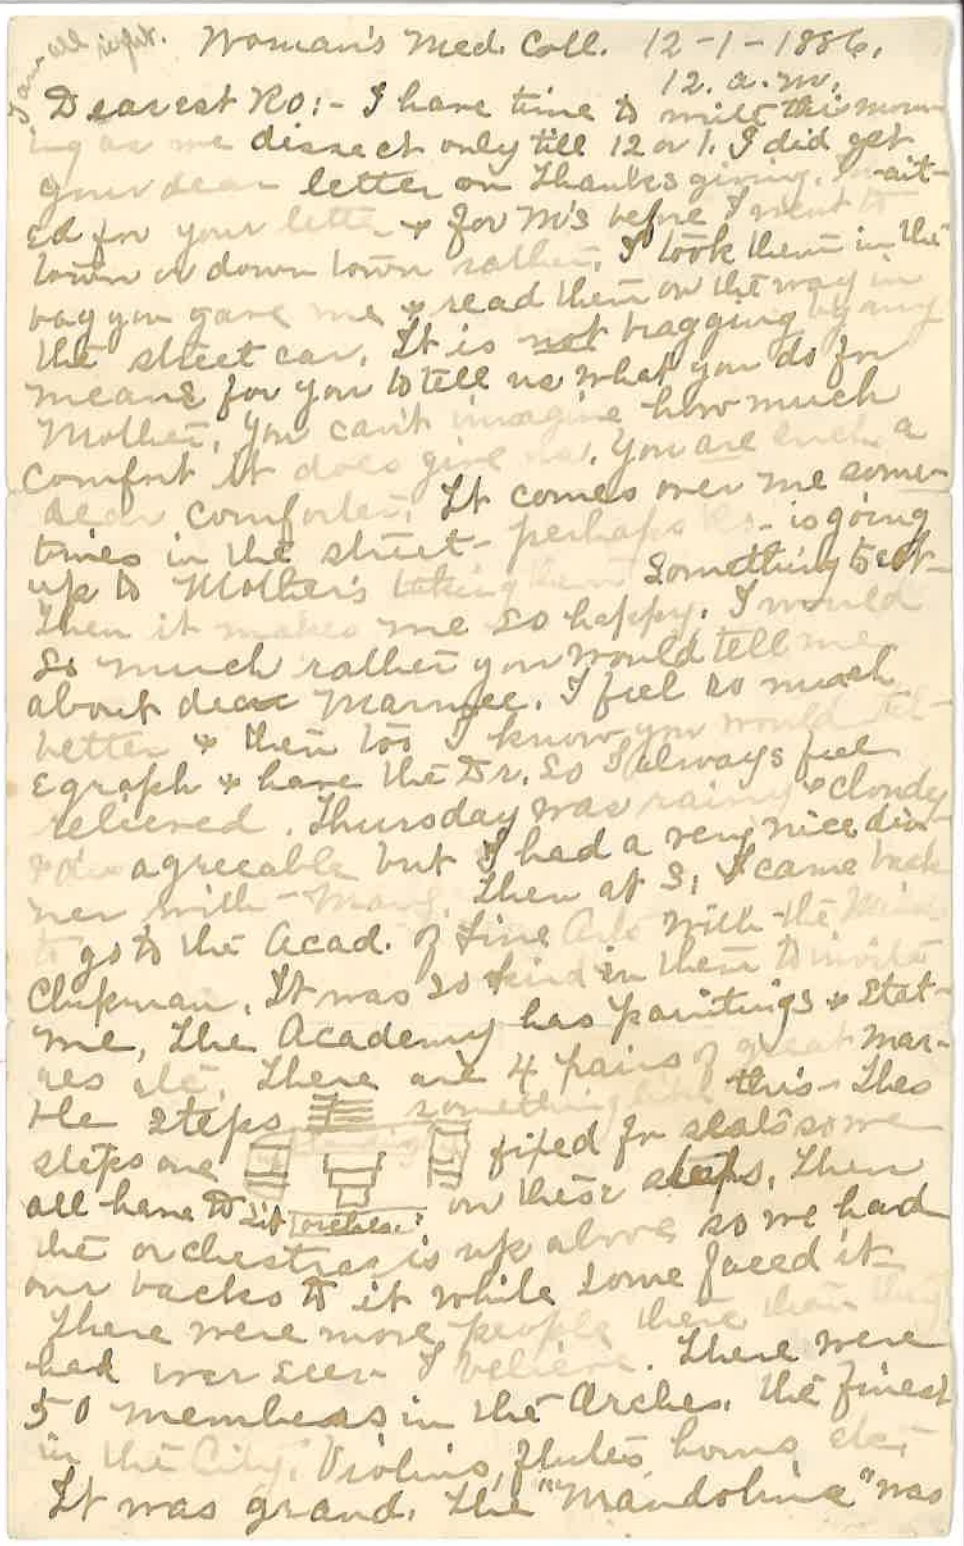 I am all right.
Woman's Med. Coll. 12-1-1886.
12. a.m.
Dearest Ro:- I have time to write this morn-
ing as we dissect only till 12 or 1. I did get
your dear letter on Thanksgiving. Wait-
ed for your letter & for M's before I went to
town or down town rather. I took them in the
bag you gave me & read them on the way in
the street car. It is not bragging by any
means for you to tell us what you do for
Mother. You can't imagine how much
comfort it does give me. You are such a
dear comforter. It comes over me some-
times in the street- perhaps Ro- is going
up to Mother's taking them something to eat-
Then it makes me so happy. I would
so much rather you would tell me
about dear Marmee. I feel so much
better & then too I know you would tel-
egraph & have the Dr. so I always feel
relieved. Thursday was rainy & cloudy
& disagreeable but I had a very nice din-
ner with Mary. Then at 3, I came back
to go to the Acad. of Fine Arts with the Misses
Chipman. It was so kind in them to invite
me. The Academy has paintings & stat-
ues etc. There are 4 pairs of great mar-
ble steps something like this- Thes
steps are fixed for seats some
all have to sit orches. on these steps. Then
the orchestra is up above so we had
our backs to it while some faced it-
There were more people there than they
had ever seen I believe. There were
50 members in the Orches. the finest
in the City. Violins, flutes, horns, etc.
It was grand. The "Mandolina" was